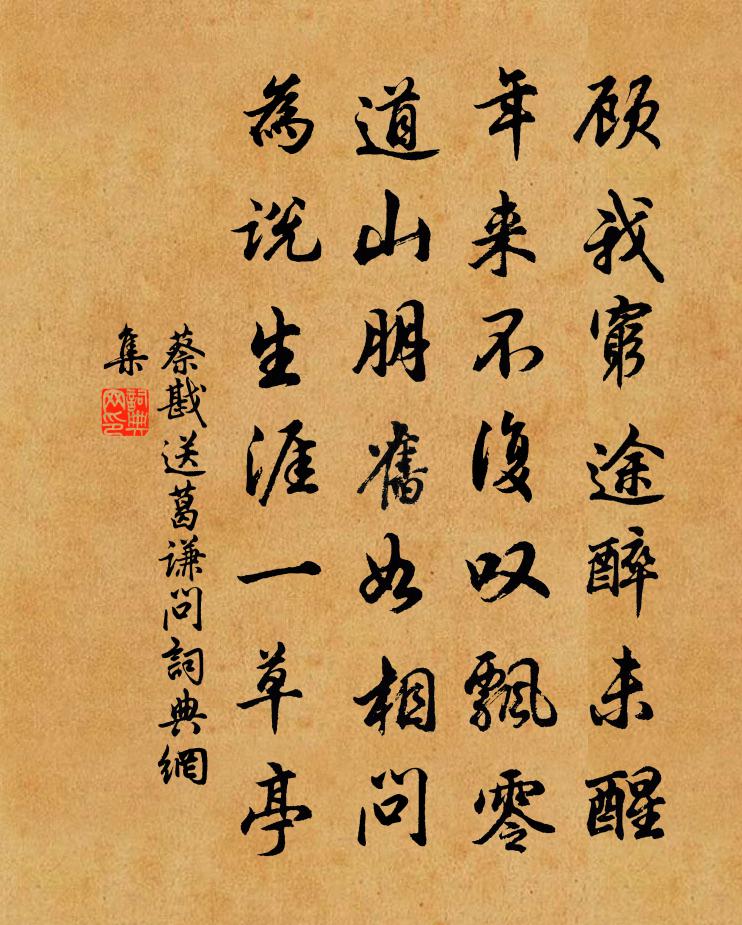 顾我窮途醉未醒
年来不復叹飄零
道山朋舊如相問
為说生涯一草亭
蔡戡送葛谦問詞典網
集
詞典網印